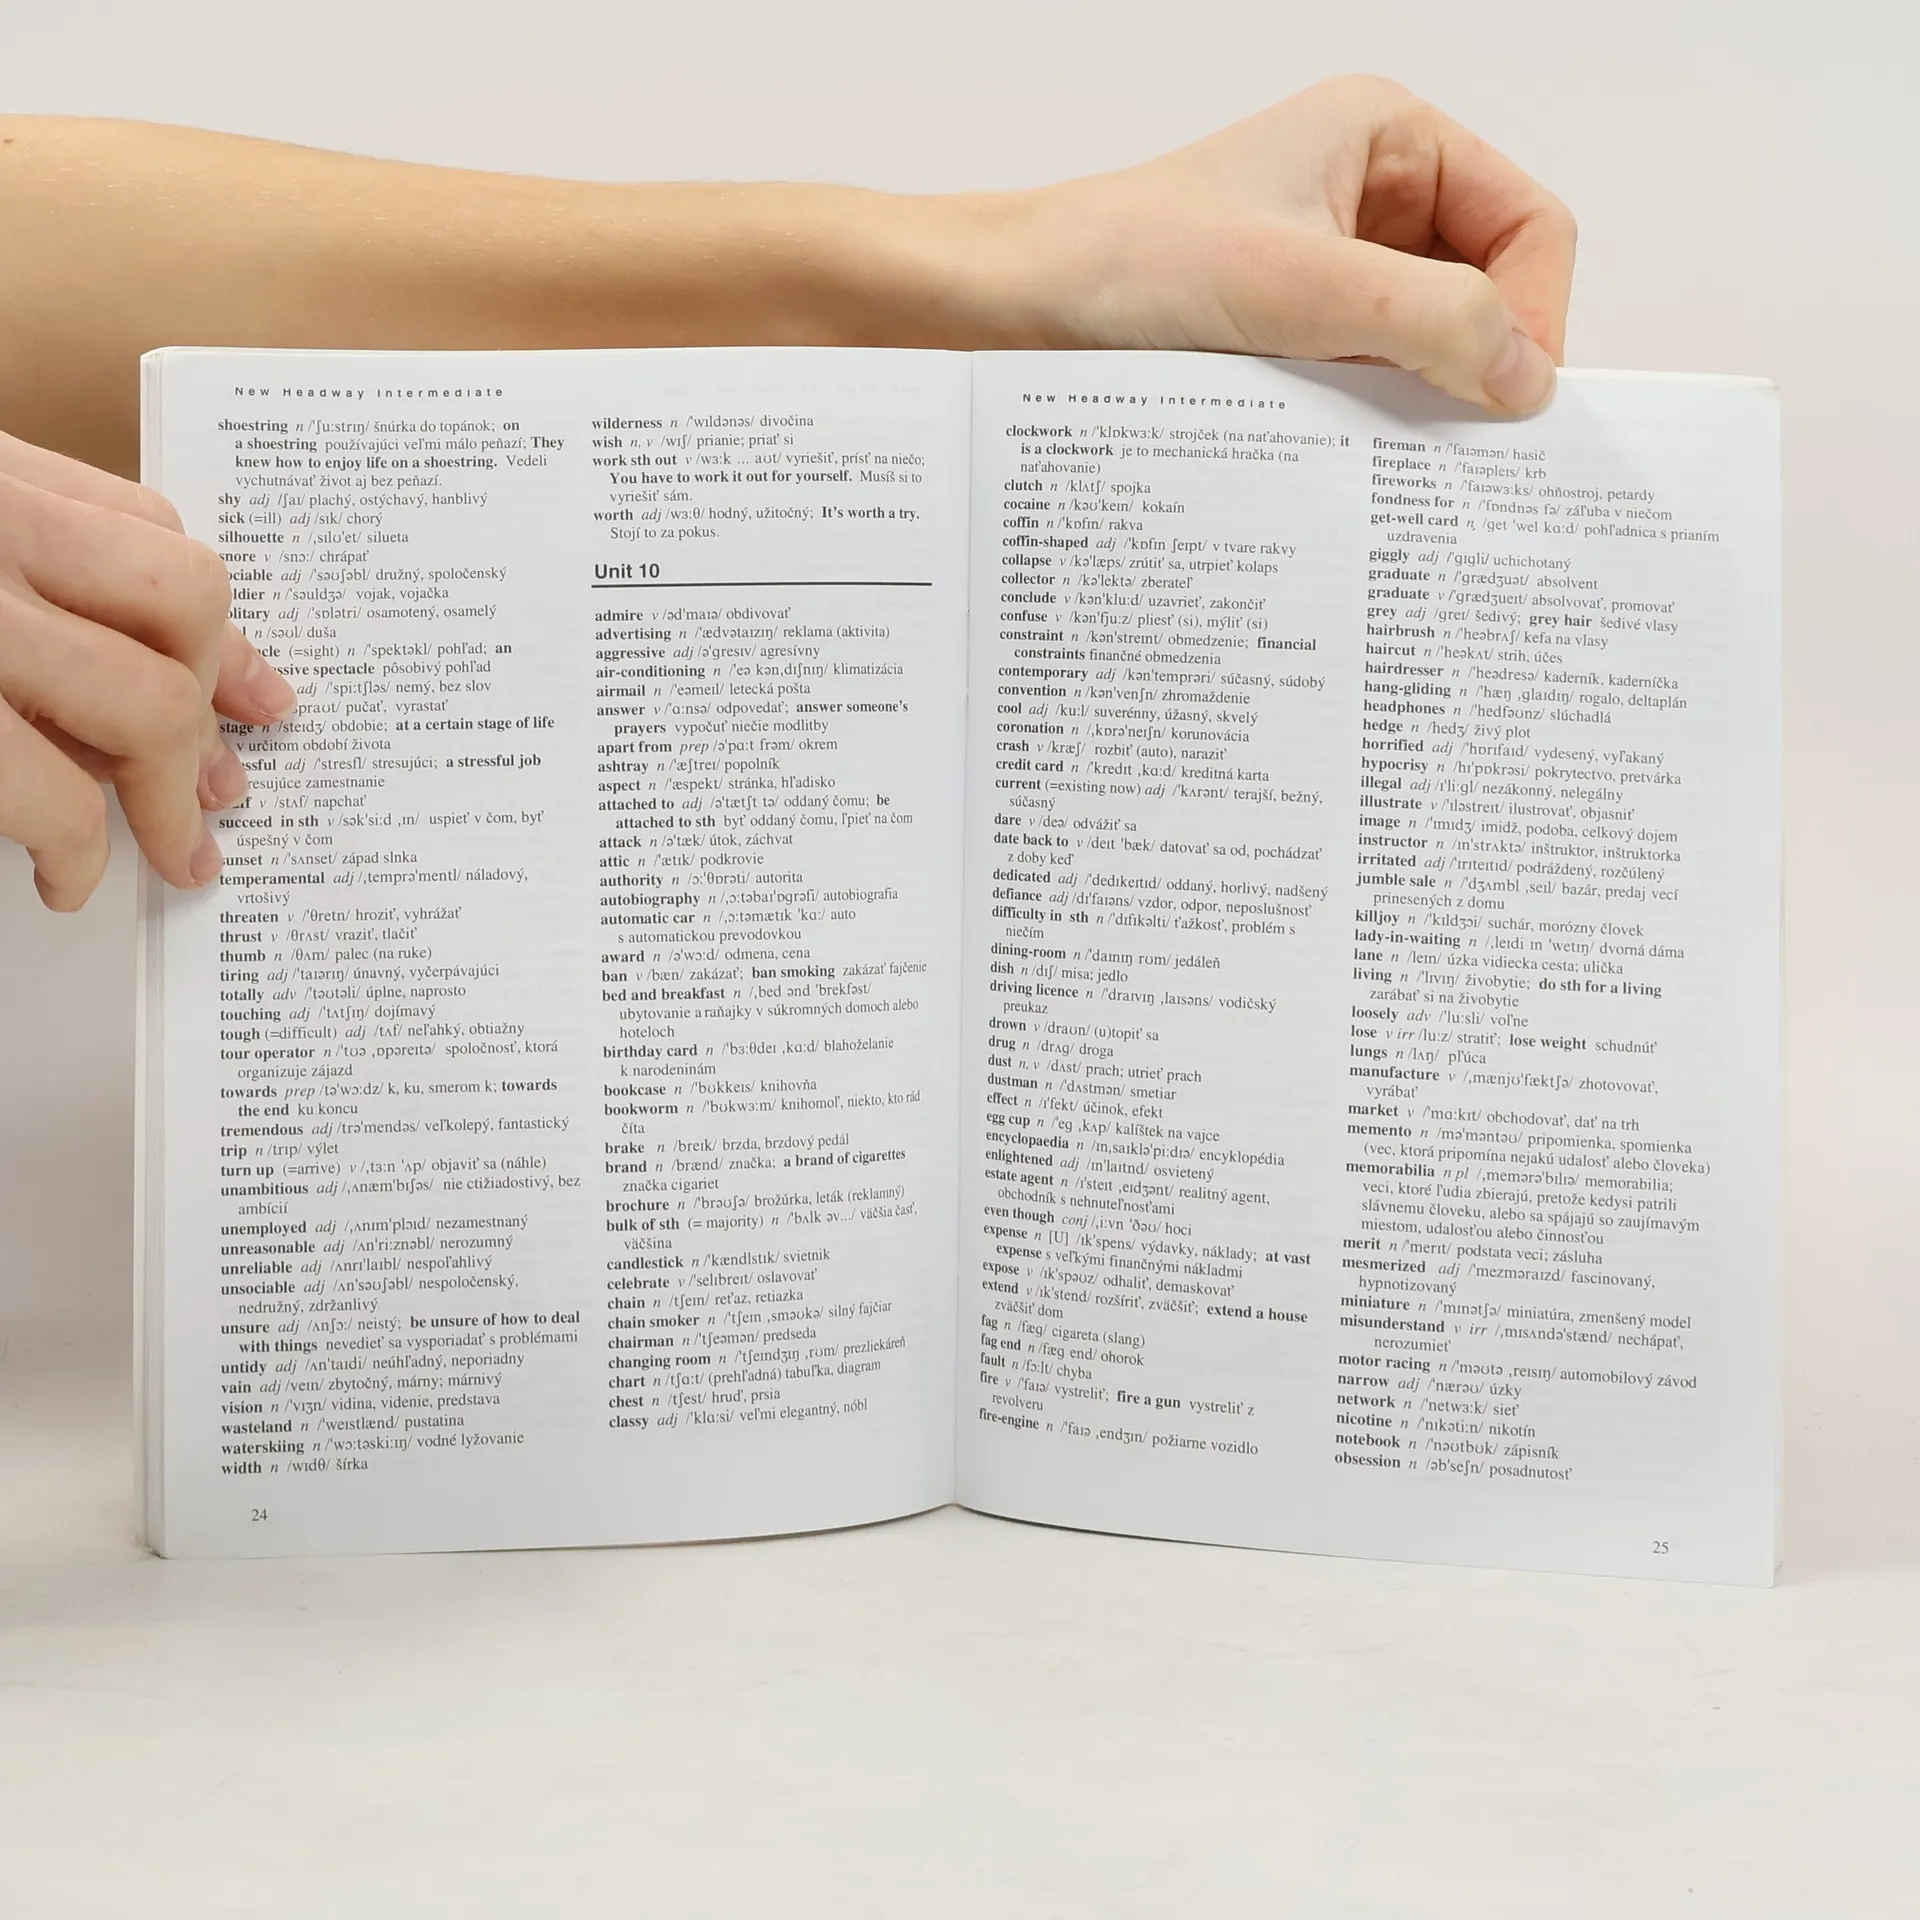 New Headway Intermediate
shoestring n /'ʃuːstrɪŋ/ šnúrka do topánok; on
a shoestring používajúci veľmi málo peňazí; They
knew how to enjoy life on a shoestring. Vedeli
vychutnávať život aj bez peňazí.
shy adj /ʃaɪ/ plachý, ostýchavý, hanblivý
sick (=ill) adj /sɪk/ chorý
silhouette n /ˌsɪlʊ'et/ silueta
snore v /snɔː/ chrápať
ociable adj /'səʊʃəbl/ družný, spoločenský
ldier n /'səuldʒə/ vojak, vojačka
olitary adj /'sɒlətri/ osamotený, osamelý
l n /səʊl/ duša
cle (=sight) n /'spektəkl/ pohľad; an
ssive spectacle pôsobivý pohľad
adj /'spiːtʃləs/ nemý, bez slov
spraʊt/ pučať, vyrastať
stage n /steɪdʒ/ obdobie; at a certain stage of life
v určitom období života
essful adj /'stresfl/ stresujúci; a stressful job
resujúce zamestnanie
f v /stʌf/ napchať
succeed in sth v /sək'siːd ˌɪn/ uspieť v čom, byť
úspešný v čom
sunset n /'sʌnset/ západ slnka
temperamental adj /ˌtemprə'mentl/ náladový,
vrtošivý
threaten v /'θretn/ hroziť, vyhrážať
thrust v /θrʌst/ vraziť, tlačiť
thumb n /θʌm/ palec (na ruke)
tiring adj /'taɪərɪŋ/ únavný, vyčerpávajúci
totally adv /'təʊtəli/ úplne, naprosto
touching adj /'tʌtʃɪŋ/ dojímavý
tough (=difficult) adj /tʌf/ neľahký, obtiažny
tour operator n /'tʊə ˌɒpəreɪtə/ spoločnosť, ktorá
organizuje zájazd
towards prep /tə'wɔːdz/ k, ku, smerom k; towards
the end ku koncu
tremendous adj /trə'mendəs/ veľkolepý, fantastický
trip n /trɪp/ výlet
turn up (=arrive) v /ˌtɜːn 'ʌp/ objaviť sa (náhle)
unambitious adj /ˌʌnæm'bɪʃəs/ nie ctižiadostivý, bez
ambícií
unemployed adj /ˌʌnɪm'plɔɪd/ nezamestnaný
unreasonable adj /ʌn'riːznəbl/ nerozumný
unreliable adj /ʌnrɪ'laɪbl/ nespoľahlivý
unsociable adj /ʌn'səʊʃəbl/ nespoločenský,
nedružný, zdržanlivý
unsure adj /ʌnʃɔː/ neistý; be unsure of how to deal
with things nevedieť sa vysporiadať s problémami
untidy adj /ʌn'taɪdi/ neúhľadný, neporiadny
vain adj /veɪn/ zbytočný, márny; márnivý
vision n /'vɪʒn/ vidina, videnie, predstava
wasteland n /'weɪstlænd/ pustatina
waterskiing n /'wɔːtəskiːɪŋ/ vodné lyžovanie
width n /wɪdθ/ šírka
24
wilderness n /'wɪldənəs/ divočina
wish n, v /wɪʃ/ prianie; priať si
work sth out v /wɜːk ... aʊt/ vyriešiť, prísť na niečo;
You have to work it out for yourself. Musíš si to
vyriešiť sám.
worth adj /wɜːθ/ hodný, užitočný; It's worth a try.
Stojí to za pokus.
Unit 10
admire v /əd'maɪə/ obdivovať
advertising n /'ædvətaɪzɪŋ/ reklama (aktivita)
aggressive adj /ə'gresɪv/ agresívny
air-conditioning n /'eə kənˌdɪʃnɪŋ/ klimatizácia
airmail n /'eəmeɪl/ letecká pošta
answer v /'ɑːnsə/ odpovedať; answer someone's
prayers vypočuť niečie modlitby
apart from prep /ə'pɑːt frəm/ okrem
ashtray n /'æʃtreɪ/ popolník
aspect n /'æspekt/ stránka, hľadisko
attached to adj /ə'tætʃt tə/ oddaný čomu; be
attached to sth byť oddaný čomu, ľpieť na čom
attack n /ə'tæk/ útok, záchvat
attic n /'ætɪk/ podkrovie
authority n /ɔː'θɒrəti/ autorita
autobiography n /ˌɔːtəbaɪ'ɒgrəfi/ autobiografia
automatic car n /ˌɔːtəmætɪk 'kɑː/ auto
s automatickou prevodovkou
award n /ə'wɔːd/ odmena, cena
ban v /bæn/ zakázať; ban smoking zakázať fajčenie
bed and breakfast n /ˌbed ənd 'brekfəst/
ubytovanie a raňajky v súkromných domoch alebo
hoteloch
birthday card n /'bɜːθdeɪ ˌkɑːd/ blahoželanie
k narodeninám
bookcase n /'bʊkkeɪs/ knihovňa
bookworm n /'bʊkwɜːm/ knihomoľ, niekto, kto rád
číta
brake n /breɪk/ brzda, brzdový pedál
brand n /brænd/ značka; a brand of cigarettes
značka cigariet
brochure n /'brəʊʃə/ brožúrka, leták (reklamný)
bulk of sth (= majority) n /'bʌlk əv.../ väčšia časť,
väčšina
candlestick n /'kændlstɪk/ svietnik
celebrate v /'selɪbreɪt/ oslavovať
chain n /tʃeɪn/ reťaz, retiazka
chain smoker n /'tʃeɪn ˌsməʊkə/ silný fajčiar
chairman n /'tʃeəmən/ predseda
changing room n /'tʃeɪndʒɪŋ ˌrʊm/ prezliekáreň
chart n /tʃɑːt/ (prehľadná) tabuľka, diagram
chest n /tʃest/ hruď, prsia
classy adj /'klɑːsi/ veľmi elegantný, nóbl
New Headway Intermediate
clockwork n /'klɒkwɜːk/ strojček (na naťahovanie); it
is a clockwork je to mechanická hračka (na
naťahovanie)
clutch n /klʌtʃ/ spojka
cocaine n /kəʊ'keɪn/ kokaín
coffin n /'kɒfɪn/ rakva
coffin-shaped adj /'kɒfɪn ʃeɪpt/ v tvare rakvy
collapse v /kə'læps/ zrútiť sa, utrpieť kolaps
collector n /kə'lektə/ zberateľ
conclude v /kən'kluːd/ uzavrieť, zakončiť
confuse v /kən'fjuːz/ pliesť (si), mýliť (si)
constraint n /kən'streɪnt/ obmedzenie; financial
constraints finančné obmedzenia
contemporary adj /kən'temprəri/ súčasný, súdobý
convention n /kən'venʃn/ zhromaždenie
cool adj /kuːl/ suverénny, úžasný, skvelý
coronation n /ˌkɒrə'neɪʃn/ korunovácia
crash v /kræʃ/ rozbiť (auto), naraziť
credit card n /'kredɪt ˌkɑːd/ kreditná karta
current (=existing now) adj /'kʌrənt/ terajší, bežný,
súčasný
dare v /deə/ odvážiť sa
date back to v /deɪt 'bæk/ datovať sa od, pochádzať
z doby keď
dedicated adj /'dedɪkeɪtɪd/ oddaný, horlivý, nadšený
defiance adj /dɪ'faɪəns/ vzdor, odpor, neposlušnosť
difficulty in sth n /'dɪfɪkəlti/ ťažkosť, problém s
niečím
dining-room n /'daɪnɪŋ rʊm/ jedáleň
dish n /dɪʃ/ misa; jedlo
driving licence n /'draɪvɪŋ ˌlaɪsəns/ vodičský
preukaz
drown v /draʊn/ (u)topiť sa
drug n /drʌg/ droga
dust n, v /dʌst/ prach; utrieť prach
dustman n /'dʌstmən/ smetiar
effect n /ɪ'fekt/ účinok, efekt
egg cup n /'eg ˌkʌp/ kalíštek na vajce
encyclopaedia n /ɪnˌsaɪklə'piːdɪə/ encyklopédia
enlightened adj /ɪn'laɪtnd/ osvietený
estate agent n /ɪ'steɪt ˌeɪdʒənt/ realitný agent,
obchodník s nehnuteľnosťami
even though conj /ˌiːvn 'ðəʊ/ hoci
expense n [U] /ɪk'spens/ výdavky, náklady; at vast
expense s veľkými finančnými nákladmi
expose v /ɪk'spəʊz/ odhaliť, demaskovať
extend v /ɪk'stend/ rozšíriť, zväčšiť; extend a house
zväčšiť dom
fag n /fæg/ cigareta (slang)
fag end n /fæg end/ ohorok
fault n /fɔːlt/ chyba
fire v /'faɪə/ vystreliť; fire a gun vystreliť z
revolveru
fire-engine n /'faɪə ˌendʒɪn/ požiarne vozidlo
fireman n /'faɪəmən/ hasič
fireplace n /'faɪəpleɪs/ krb
fireworks n /'faɪəwɜːks/ ohňostroj, petardy
fondness for n /'fɒndnəs fə/ záľuba v niečom
get-well card n /get 'wel kɑːd/ pohľadnica s prianím
uzdravenia
giggly adj /'gɪgli/ uchichotaný
graduate n /'grædʒuət/ absolvent
graduate v /'grædʒueɪt/ absolvovať, promovať
grey adj /greɪ/ šedivý; grey hair šedivé vlasy
hairbrush n /'heəbrʌʃ/ kefa na vlasy
haircut n /'heəkʌt/ strih, účes
hairdresser n /'heədresə/ kaderník, kaderníčka
hang-gliding n /'hæŋ ˌglaɪdɪŋ/ rogalo, deltaplán
headphones n /'hedfəʊnz/ slúchadlá
hedge n /hedʒ/ živý plot
horrified adj /'hɒrɪfaɪd/ vydesený, vyľakaný
hypocrisy n /hɪ'pɒkrəsi/ pokrytectvo, pretvárka
illegal adj /ɪ'liːgl/ nezákonný, nelegálny
illustrate v /'ɪləstreɪt/ ilustrovať, objasniť
image n /'ɪmɪdʒ/ imidž, podoba, celkový dojem
instructor n /ɪn'strʌktə/ inštruktor, inštruktorka
irritated adj /'ɪrɪteɪtɪd/ podráždený, rozčúlený
jumble sale n /'dʒʌmbl ˌseɪl/ bazár, predaj vecí
prinesených z domu
killjoy n /'kɪldʒɔɪ/ suchár, morózny človek
lady-in-waiting n /ˌleɪdi ɪn 'wetɪŋ/ dvorná dáma
lane n /leɪn/ úzka vidiecka cesta; ulička
living n /'lɪvɪŋ/ živobytie; do sth for a living
zarábať si na živobytie
loosely adv /'luːsli/ voľne
lose v irr /luːz/ stratiť; lose weight schudnúť
lungs n /lʌŋ/ pľúca
manufacture v /ˌmænjʊ'fæktʃə/ zhotovovať,
vyrábať
market v /'mɑːkɪt/ obchodovať, dať na trh
memento n /mə'məntəʊ/ pripomienka, spomienka
(vec, ktorá pripomína nejakú udalosť alebo človeka)
memorabilia n pl /ˌmemərə'bɪlɪə/ memorabilia;
veci, ktoré ľudia zbierajú, pretože kedysi patrili
slávnemu človeku, alebo sa spájajú so zaujímavým
miestom, udalosťou alebo činnosťou
merit n /'merɪt/ podstata veci; zásluha
mesmerized adj /'mezməraɪzd/ fascinovaný,
hypnotizovaný
miniature n /'mɪnətʃə/ miniatúra, zmenšený model
misunderstand v irr /ˌmɪsʌndə'stænd/ nechápať,
nerozumieť
motor racing n /'məʊtə ˌreɪsɪŋ/ automobilový závod
narrow adj /'nærəʊ/ úzky
network n /'netwɜːk/ sieť
nicotine n /'nɪkətiːn/ nikotín
notebook n /'nəʊtbʊk/ zápisník
obsession n /əb'seʃn/ posadnutosť
25